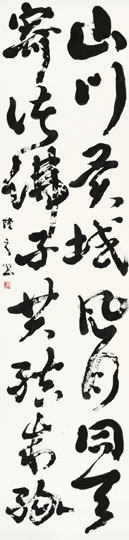 山川異域風月同天
寄诸佛子共結来緣